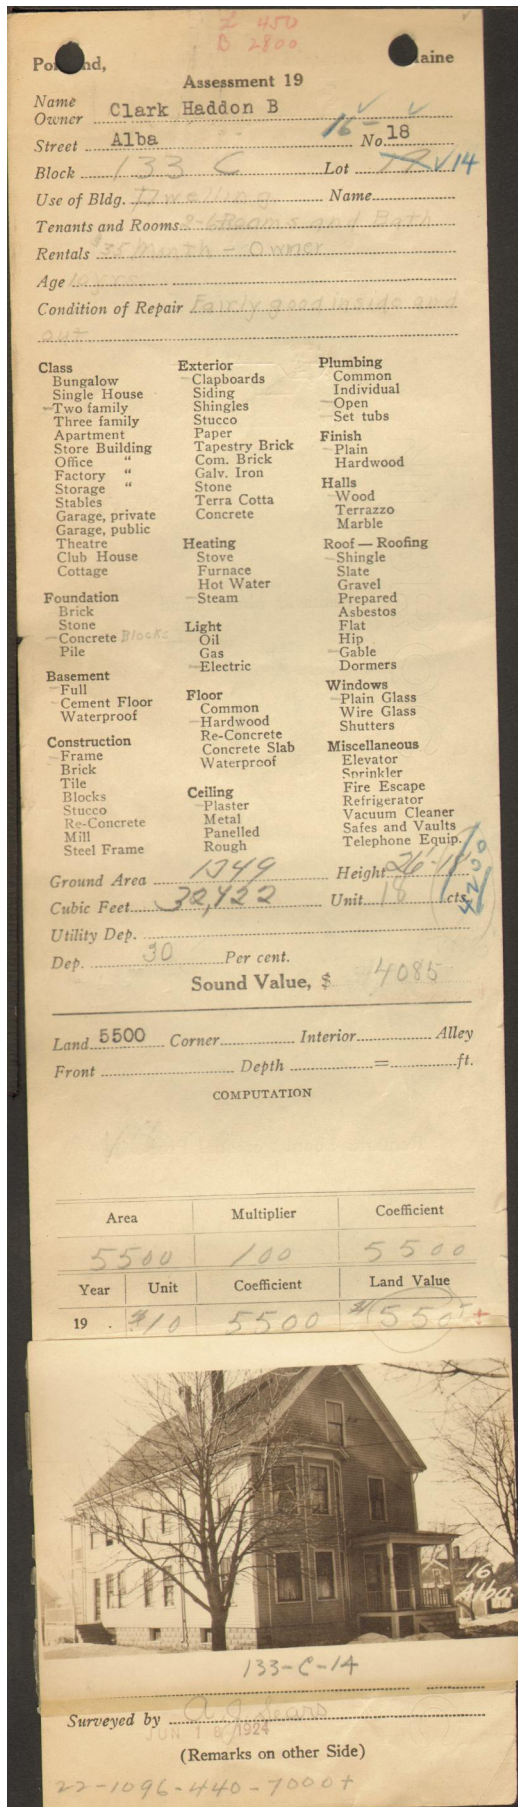 L 450
B 2800
Portland, Maine
Assessment 19
Name
Owner Clark Haddon B
Street Alba 16- No. 18
Block 133 C Lot 14
Use of Bldg. Dwelling Name
Tenants and Rooms 2-6 Rooms and Bath
Rentals $35 Month - Owner
Age yrs
Condition of Repair Fairly good inside and
out
Class
Bungalow
Single House
-Two family
Three family
Apartment
Store Building
Office "
Factory "
Storage "
Stables
Garage, private
Garage, public
Theatre
Club House
Cottage
Foundation
Brick
Stone
-Concrete Blocks
Pile
Basement
-Full
-Cement Floor
Waterproof
Construction
-Frame
Brick
Tile
Blocks
Stucco
Re-Concrete
Mill
Steel Frame
Exterior
-Clapboards
Siding
Shingles
Stucco
Paper
Tapestry Brick
Com. Brick
Galv. Iron
Stone
Terra Cotta
Concrete
Heating
Stove
Furnace
Hot Water
-Steam
Light
Oil
Gas
-Electric
Floor
Common
-Hardwood
Re-Concrete
Concrete Slab
Waterproof
Ceiling
-Plaster
Metal
Panelled
Rough
Plumbing
Common
Individual
-Open
-Set tubs
Finish
-Plain
Hardwood
Halls
-Wood
Terrazzo
Marble
Roof — Roofing
-Shingle
Slate
Gravel
Prepared
Asbestos
Flat
Hip
-Gable
Dormers
Windows
-Plain Glass
Wire Glass
Shutters
Miscellaneous
Elevator
Sprinkler
Fire Escape
Refrigerator
Vacuum Cleaner
Safes and Vaults
Telephone Equip.
Ground Area 1349 Height 26-18
Cubic Feet 32,422 Unit 18 cts.
4200
Utility Dep.
Dep. 30 Per cent.
Sound Value, $ 4085
Land 5500 Corner Interior Alley
Front Depth = ft.
COMPUTATION
Area Multiplier Coefficient
5500 100 5500
Year Unit Coefficient Land Value
19 . $10 5500 $550 +
16
Alba
133-C-14
Surveyed by A J Sears
JUN 18 1924
(Remarks on other Side)
22-1096-440-7000+